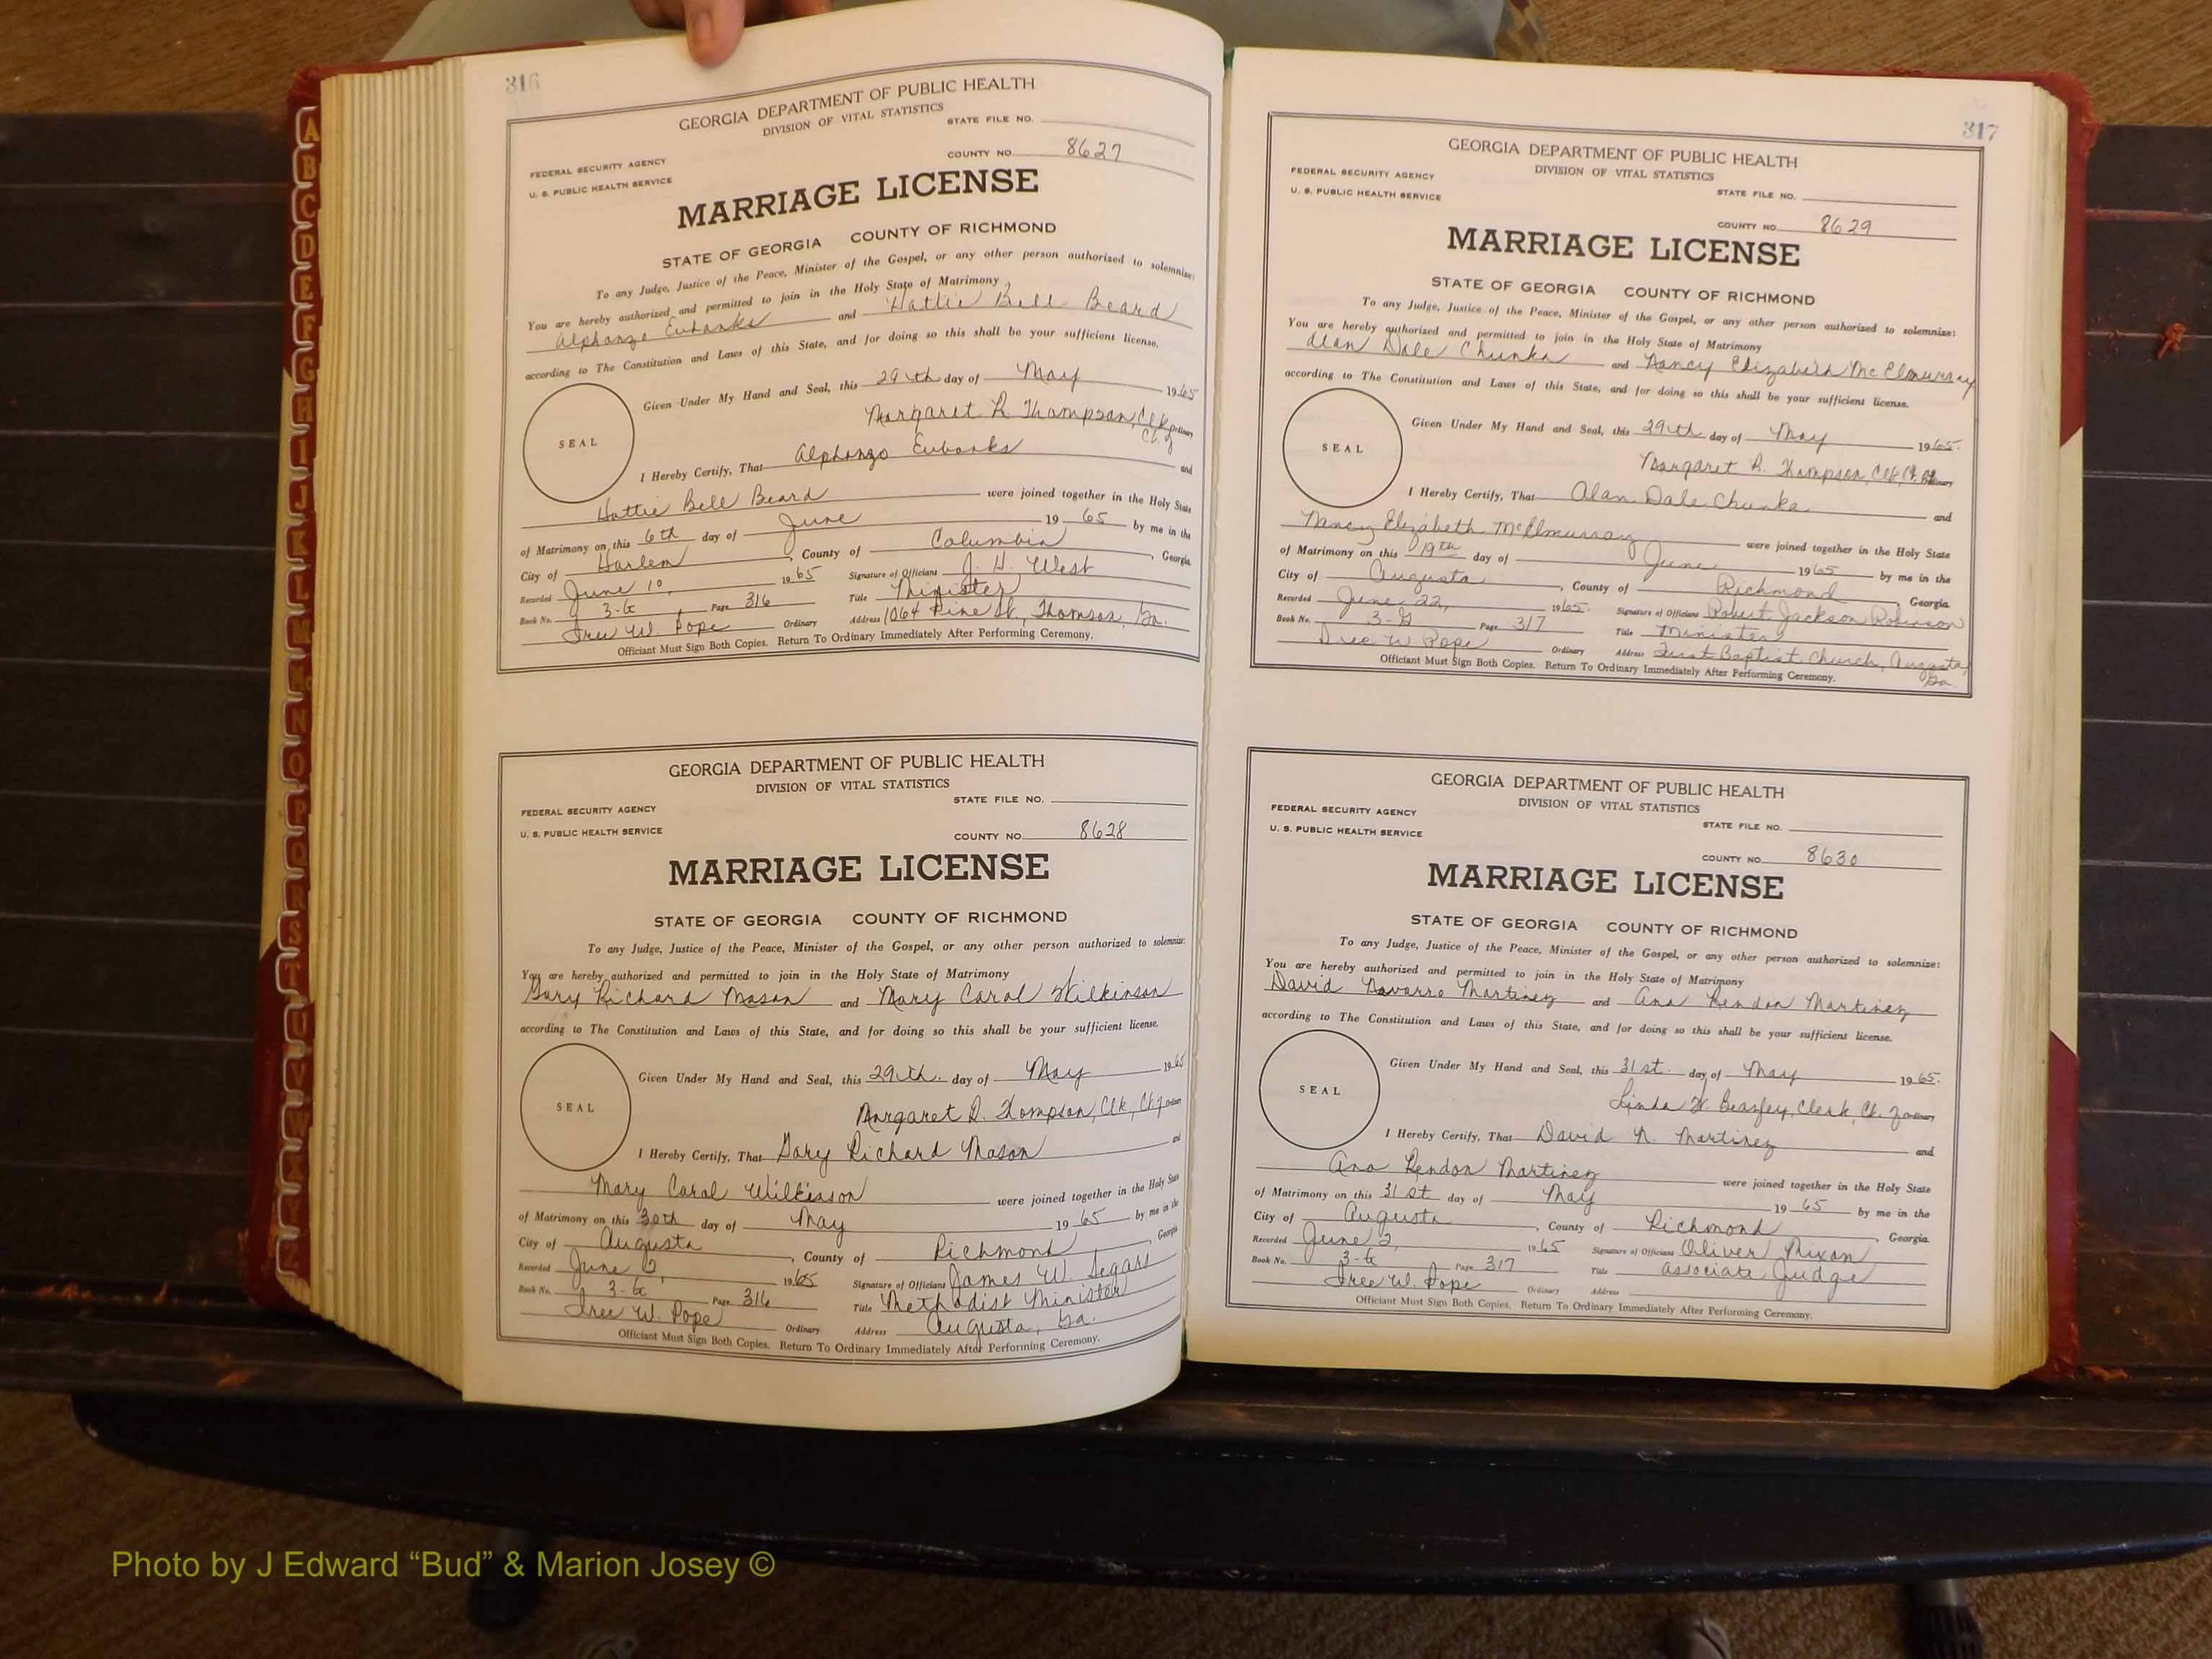 316
GEORGIA DEPARTMENT OF PUBLIC HEALTH
DIVISION OF VITAL STATISTICS
STATE FILE NO.
FEDERAL SECURITY AGENCY
U. S. PUBLIC HEALTH SERVICE
COUNTY NO. 8627
MARRIAGE LICENSE
STATE OF GEORGIA COUNTY OF RICHMOND
To any Judge, Justice of the Peace, Minister of the Gospel, or any other person authorized to solemnize:
You are hereby authorized and permitted to join in the Holy State of Matrimony
Alphonzo Eubanks and Hattie Bell Beard
according to The Constitution and Laws of this State, and for doing so this shall be your sufficient license.
Given Under My Hand and Seal, this 29th day of May 1965
Margaret R. Thompson, Clk Ordinary
Ct. of
SEAL
I Hereby Certify, That Alphonzo Eubanks and
Hattie Bell Beard were joined together in the Holy State
of Matrimony on this 6th day of June 19 65 by me in the
City of Harlem, County of Columbia, Georgia.
Recorded June 10, 1965 Signature of Officiant J. H. West
Book No. 3-G, Page 316 Title Minister
Iree W. Pope Ordinary Address 1064 Pine St., Thomson, Ga.
Officiant Must Sign Both Copies. Return To Ordinary Immediately After Performing Ceremony.
GEORGIA DEPARTMENT OF PUBLIC HEALTH
DIVISION OF VITAL STATISTICS
STATE FILE NO.
FEDERAL SECURITY AGENCY
U. S. PUBLIC HEALTH SERVICE
COUNTY NO. 8628
MARRIAGE LICENSE
STATE OF GEORGIA COUNTY OF RICHMOND
To any Judge, Justice of the Peace, Minister of the Gospel, or any other person authorized to solemnize:
You are hereby authorized and permitted to join in the Holy State of Matrimony
Gary Richard Mason and Mary Carol Wilkinson
according to The Constitution and Laws of this State, and for doing so this shall be your sufficient license.
Given Under My Hand and Seal, this 29th. day of May 1965
Margaret R. Thompson, Clk, Ct of Ordinary
SEAL
I Hereby Certify, That Gary Richard Mason and
Mary Carol Wilkinson were joined together in the Holy State
of Matrimony on this 30th day of May 19 65 by me in the
City of Augusta, County of Richmond Georgia
Recorded June 2, 1965 Signature of Officiant James W. Segars
Book No. 3-G, Page 316 Title Methodist Minister
Iree W. Pope Ordinary Address Augusta, Ga.
Officiant Must Sign Both Copies. Return To Ordinary Immediately After Performing Ceremony.
317
GEORGIA DEPARTMENT OF PUBLIC HEALTH
DIVISION OF VITAL STATISTICS
FEDERAL SECURITY AGENCY
U. S. PUBLIC HEALTH SERVICE
STATE FILE NO.
COUNTY NO. 8629
MARRIAGE LICENSE
STATE OF GEORGIA COUNTY OF RICHMOND
To any Judge, Justice of the Peace, Minister of the Gospel, or any other person authorized to solemnize:
You are hereby authorized and permitted to join in the Holy State of Matrimony
Alan Dale Chunka and Nancy Elizabeth McElmurray
according to The Constitution and Laws of this State, and for doing so this shall be your sufficient license.
Given Under My Hand and Seal, this 29th day of May 1965.
Margaret R. Thompson, Clk, Ct. of Ordinary
SEAL
I Hereby Certify, That Alan Dale Chunka and
Nancy Elizabeth McElmurray were joined together in the Holy State
of Matrimony on this 19th day of June 1965 by me in the
City of Augusta, County of Richmond, Georgia.
Recorded June 22, 1965. Signature of Officiant Robert Jackson Robinson
Book No. 3-G Page 317 Title Minister
Iree W Pope Ordinary Address First Baptist Church, Augusta,
Ga.
Officiant Must Sign Both Copies. Return To Ordinary Immediately After Performing Ceremony.
GEORGIA DEPARTMENT OF PUBLIC HEALTH
DIVISION OF VITAL STATISTICS
FEDERAL SECURITY AGENCY
U. S. PUBLIC HEALTH SERVICE
STATE FILE NO.
COUNTY NO. 8630
MARRIAGE LICENSE
STATE OF GEORGIA COUNTY OF RICHMOND
To any Judge, Justice of the Peace, Minister of the Gospel, or any other person authorized to solemnize:
You are hereby authorized and permitted to join in the Holy State of Matrimony
David Navarro Martinez and Ana Rendon Martinez
according to The Constitution and Laws of this State, and for doing so this shall be your sufficient license.
Given Under My Hand and Seal, this 31st. day of May 1965.
Linda W. Beazley, Clerk, Ct. of Ordinary
SEAL
I Hereby Certify, That David N. Martinez and
Ana Rendon Martinez were joined together in the Holy State
of Matrimony on this 31st day of May 19 65 by me in the
City of Augusta, County of Richmond, Georgia.
Recorded June 2, 1965 Signature of Officiant Oliver Nixon
Book No. 3-G, Page 317 Title Associate Judge
Iree W. Pope Ordinary Address
Officiant Must Sign Both Copies. Return To Ordinary Immediately After Performing Ceremony.
A
B
C
D
E
F
G
H
I
J
K
L
M
Mc
N
O
P
Q
R
S
T
U
V
W
X
Y
Z
Photo by J Edward “Bud” & Marion Josey ©